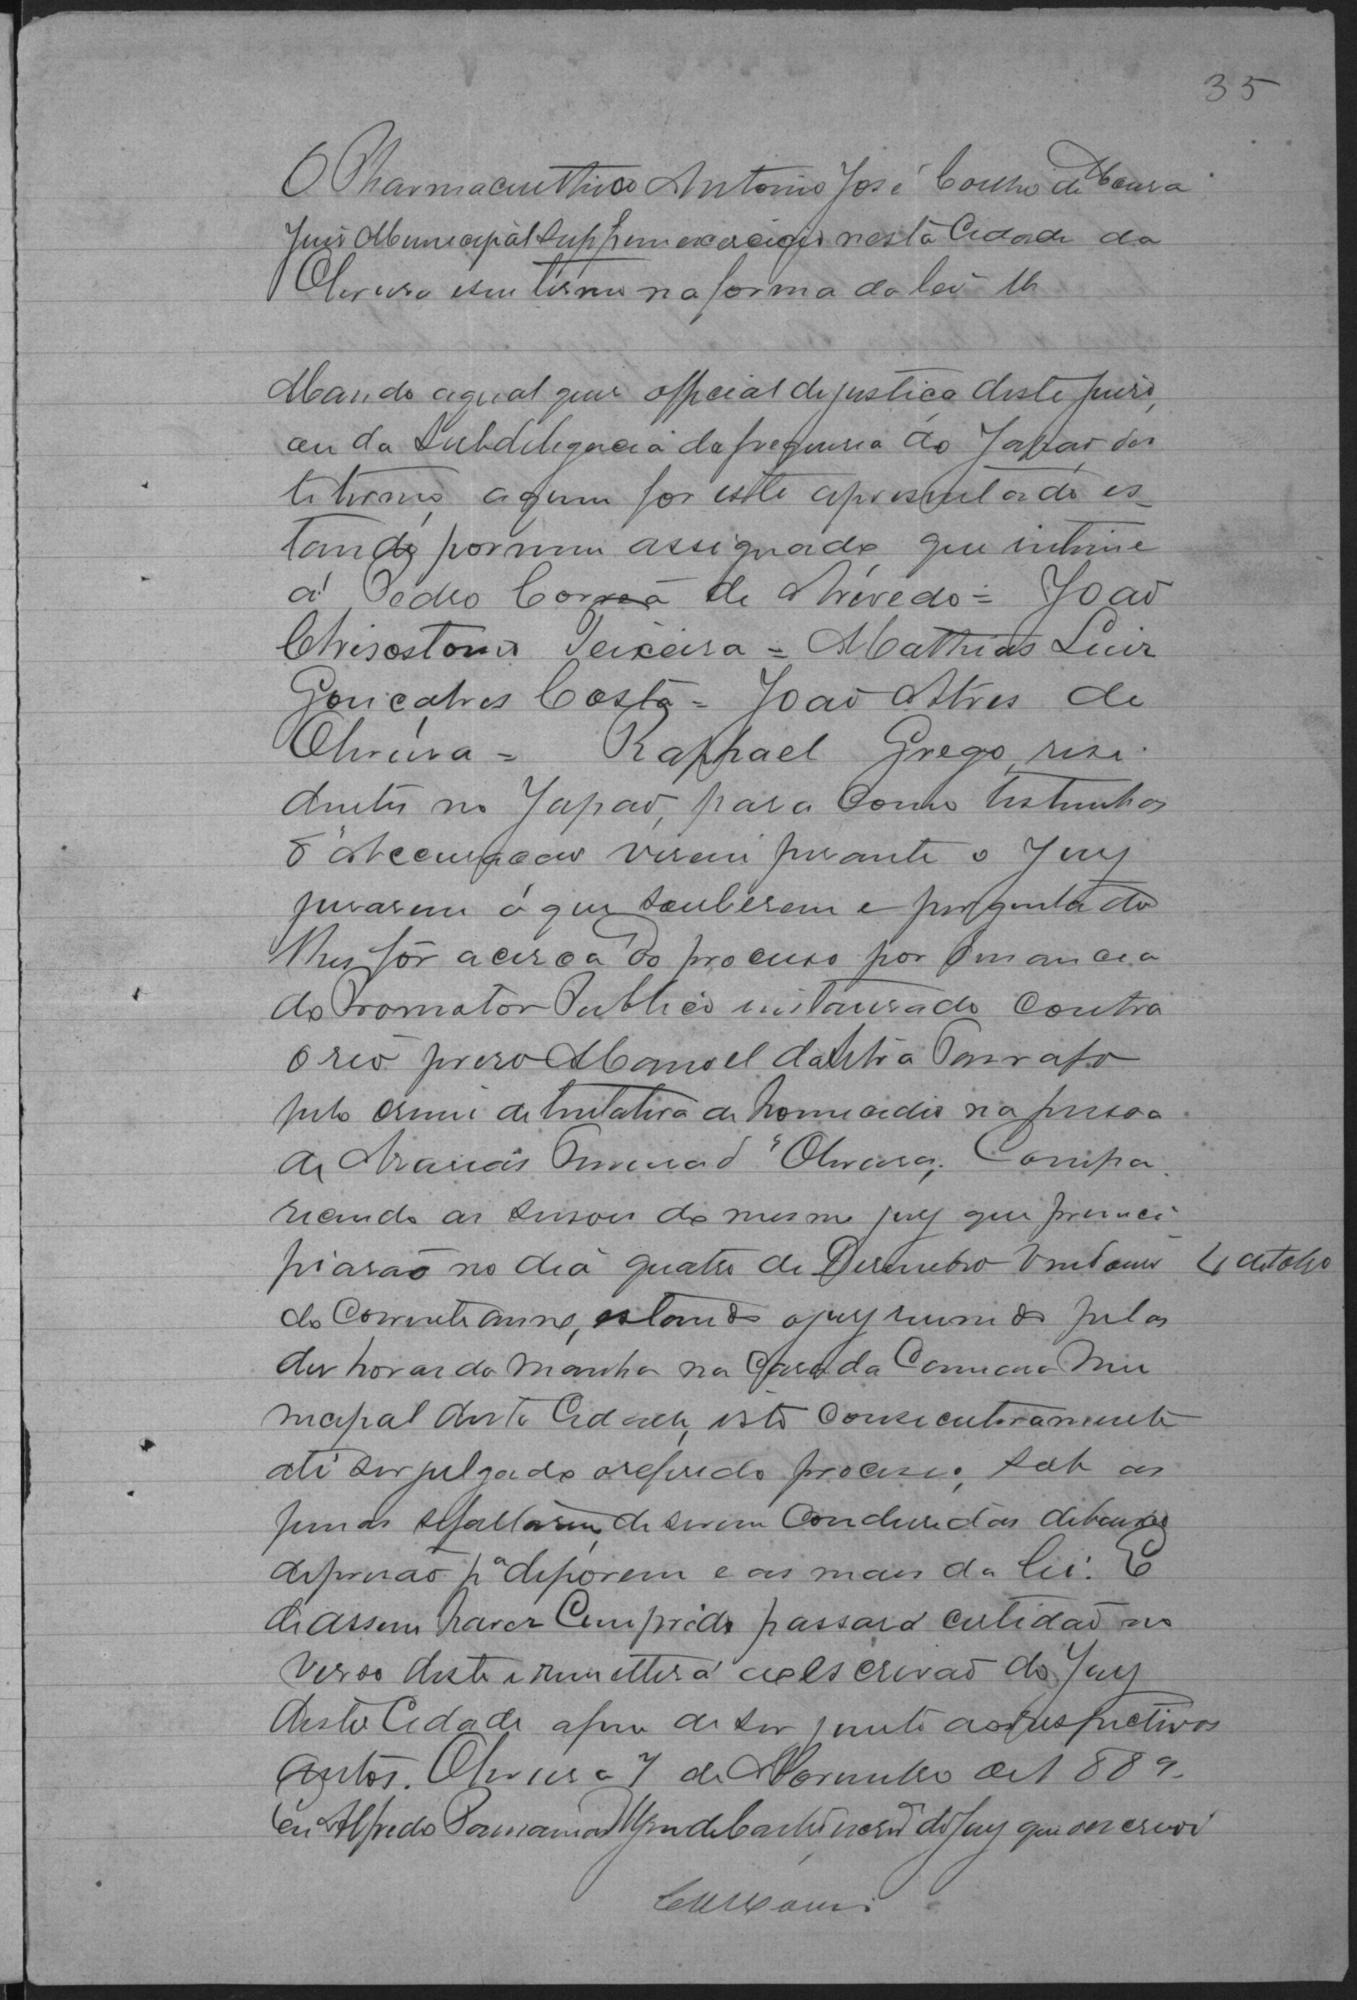 35
O Pharmaceuthico Antonio José Coelho de Moura
Juis Municipal Supp em exercicio nesta Cidade da
Oliveira e seu termo na forma da lei
Mando a qual quer official de justiça deste Juiso,
ou da Subdelegacia da freguesia do Japaõ des
te termo, a quem for este apresentado es
tando por mim assignado, que intime
á Pedro Corrêa de Asevedo = Joaõ
Chrisostomo Teixeira = Mathias Luiz
Gonçalves Costa = Joaõ Alves de
Oliveira = Raphael Grego, resi
dentes no Japaõ, para como testemunhas
d'Accusaçaõ virem perante o Jury
jurarem o que souberem e perguntado
lhes fôr acerca do processo por denuncia
do Promotor Publico instaurado contra
o reo preso Manoel da
pelo crime de tentativa de homicidio na pessoa
de Ananias d'Oliveira, Compa
recendo as sessoes do mesmo jury que princi
piaraõ no dia quatro de Desembro vindouro 4 de
do Corrente anno, estando o jury reunido pelas
des horas da manha na Casa da Camara Mu
nicipal desta Cidade, isto consecutivamente
até ser julgado o referido processo; sob as
penas se faltarem, de serem Condusidas debaixo
de prisaõ pª deporem e as mais da lei. E
de assim haver Cumprido passará certidaõ no
verso deste e remetterá ao Escrivaõ do Jury
desta Cidade afim de ser junto aos respectivos
autos. Oliveira 7 de Novembro de 1889.
Eu Alfredo de Castro escrvaõ do Jury que o escrevi